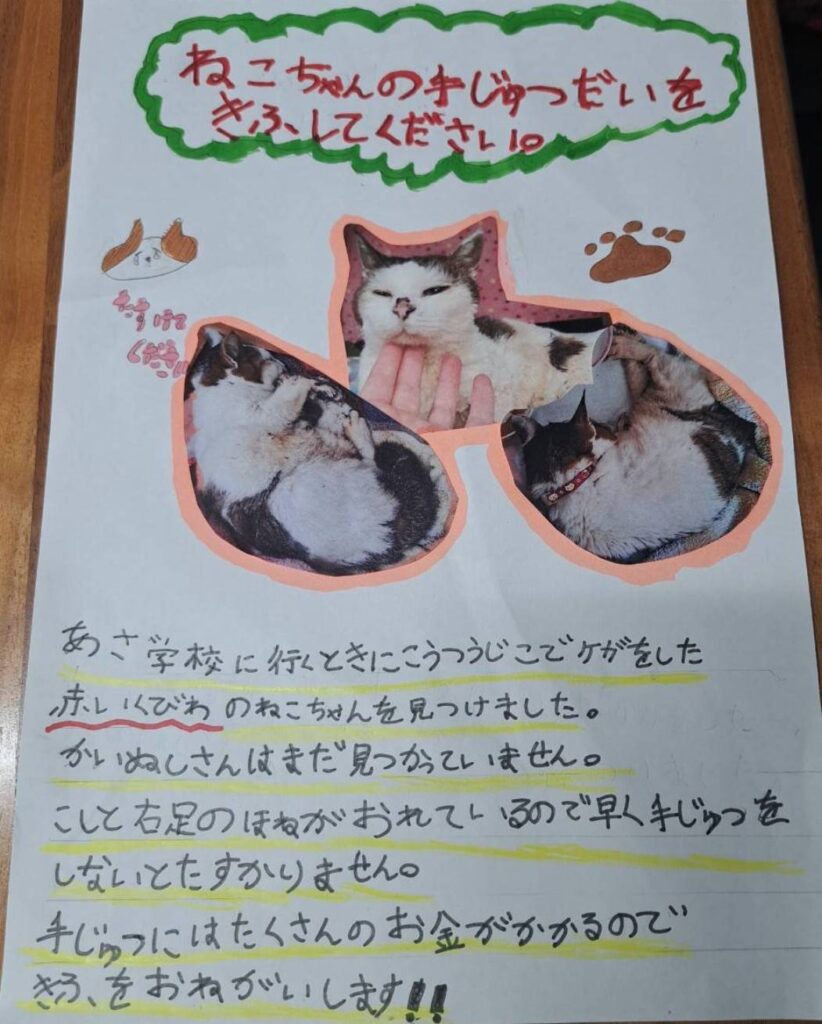 ねこちゃんの手じゅつだいを
きふしてください。
たすけて
ください
あさ学校に行くときにこうつうじこでケガをした
赤いくびわのねこちゃんを見つけました。
かいぬしさんはまだ見つかっていません。
こしと右足のほねがおれているので早く手じゅつを
しないとたすかりません。
手じゅつにはたくさんのお金がかかるので
きふをおねがいします!!